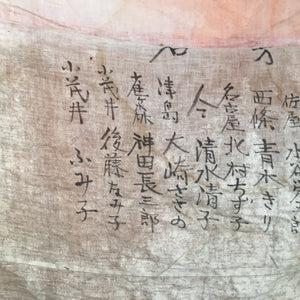 佐屋
西條 青木きり
名古屋 北村ちず子
仝 清水清子
津島 大崎さきの
雀ヶ森 神田長三郎
小茂井 後藤なみ子
小茂井 ふみ子